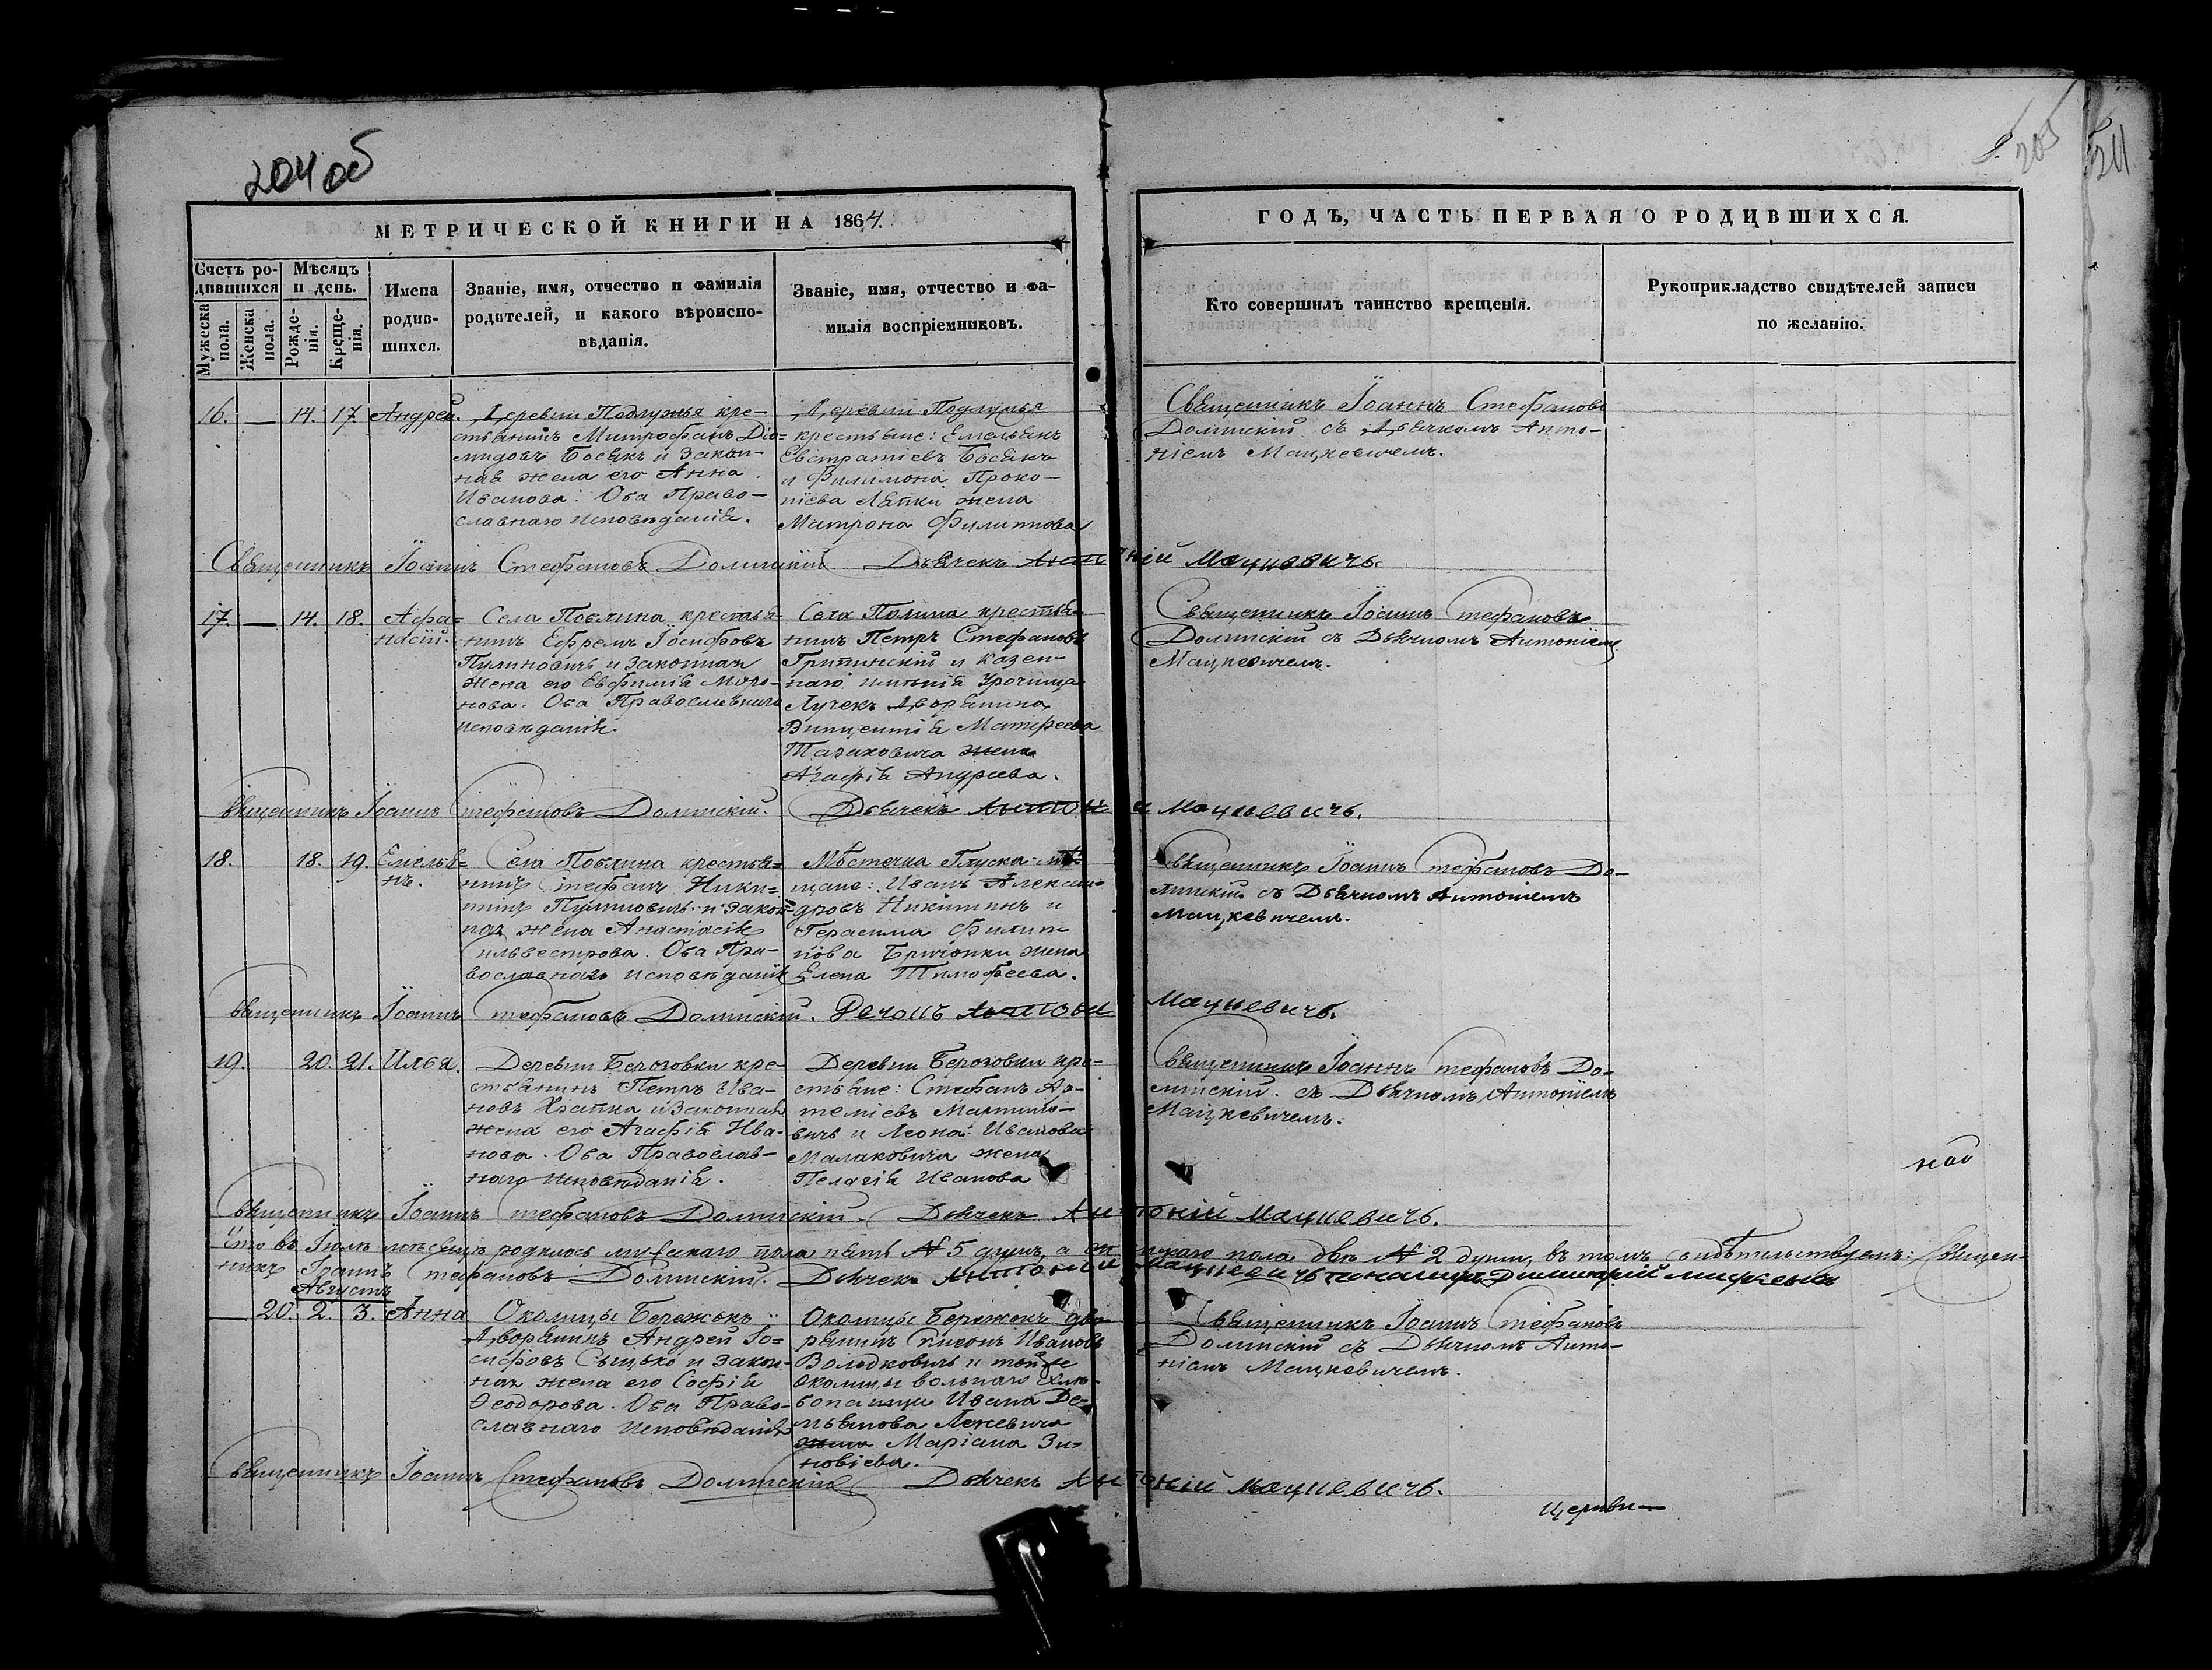 204 об
205
211
МЕТРИЧЕСКОЙ КНИГИ НА 1864.
ГОДЪ, ЧАСТЬ ПЕРВАЯ О РОДИВШИХСЯ.
Счетъ ро-
дившихся
Мужеска
пола.
Женска
пола.
Мѣсяцъ
и день.
Рожде-
нія.
Креще-
нія.
Имена
родив-
шихся.
Званіе, имя, отчество и фамилія
родителей, и какого вѣроиспо-
вѣданія.
Званіе, имя, отчество и фа-
милія воспріемниковъ.
Кто совершилъ таинство крещенія.
Рукоприкладство свидѣтелей записи
по желанію.
16. — 14. 17. Андрей.
Деревни Подлужья кре-
стьянинъ Митрофанъ Діо-
мидовъ Босякъ и закон-
ная жена его Анна
Иванова: Оба Право-
славнаго исповѣданія.
Деревни Подлужья
крестьяне: Емельянъ
Евстратіевъ Босякъ
и Филимона Проко-
піева Лятки жена
Матрона Филиппова
Священникъ Іоаннъ Стефановъ
Долинскій съ Дьячкомъ Анто-
ніемъ Мацкевичемъ.
Священникъ Іоаннъ Стефановъ Долинскій Дьячекъ Антоній Мацкевичъ.
17. — 14. 18. Афа=
насій.
Села Поблина крестья-
нинъ Ефремъ Іосифовъ
Пулиновичъ и законная
жена его Евфимія Миро-
нова. Оба Православнаго
исповѣданія.
Села Поблина крестья-
нинъ Петръ Стефановъ
и казен-
наго имѣнія Урочища
Лучекъ Дворянина
Викентія Матфеева
жена
Агафія Андреева.
Священникъ Іоаннъ Стефановъ
Долинскій съ Дьячкомъ Антоніемъ
Мацкевичемъ.
Священникъ Іоаннъ Стефановъ Долинскій. Дьячекъ Антоній Мацкевичъ.
18. 18. 19. Емелья=
нъ.
Села Поблина крестья=
нинъ Стефанъ Ники=
тинъ Пулиновичъ и закон=
ная жена Анастасія
Сильвестрова. Оба Пра-
вославнаго исповѣданія
Мѣстечка Глуска мѣ-
щане: Иванъ Алексан-
дровъ Никитинъ и
Герасима Филип-
пова жена
Елена Тимофеева.
Священникъ Іоаннъ Стефановъ До-
линскій съ Дьячкомъ Антоніемъ
Мацкевичемъ.
Священникъ Іоаннъ Стефановъ Долинскій. Антоній Мацкевичъ.
19. 20. 21. Илья.
Деревни Березовки кре-
стьянинъ Петръ Ива-
новъ Храпка и законная
жена его Агафія Ива-
нова. Оба Православ-
наго исповѣданія.
Деревни Березовки кре-
стьяне: Стефанъ Ар-
теміевъ Мартино-
вичъ и Леона Иванова
Малаковича жена
Пелагія Иванова
Священникъ Іоаннъ Стефановъ До-
линскій. съ Дьячкомъ Антоніемъ
Мацкевичемъ.
Священникъ Іоаннъ Стефановъ Долинскій. Дьячекъ Антоній Мацкевичъ.
Что въ Іюлѣ мѣсяцѣ родилось мужескаго пола пять № 5 душъ, а женскаго пола двѣ № 2 души, въ томъ свидѣтельствуемъ: Священ-
никъ Іоаннъ Стефановъ Долинскій. Дьячекъ Антоній Мацкевичъ Пономарь Димитрій
Августъ
— 20. 2. 3. Анна
Околицы Бережокъ
Дворянинъ Андрей Іо-
сифовъ Сыцько и закон-
ная жена его Софія
Ѳеодорова. Оба Право-
славнаго исповѣданія
Околицы Бережокъ дво-
рянинъ Ивановъ
Володковичъ и той же
околицы вольнаго хлѣ-
бопашца Ивана Де-
мьянова
жена Маріана Зи-
новіева.
Священникъ Іоаннъ Стефановъ
Долинскій съ Дьячкомъ Анто-
ніемъ Мацкевичемъ.
Священникъ Іоаннъ Стефановъ Долинскій Дьячекъ Антоній Мацкевичъ.
Церкви—